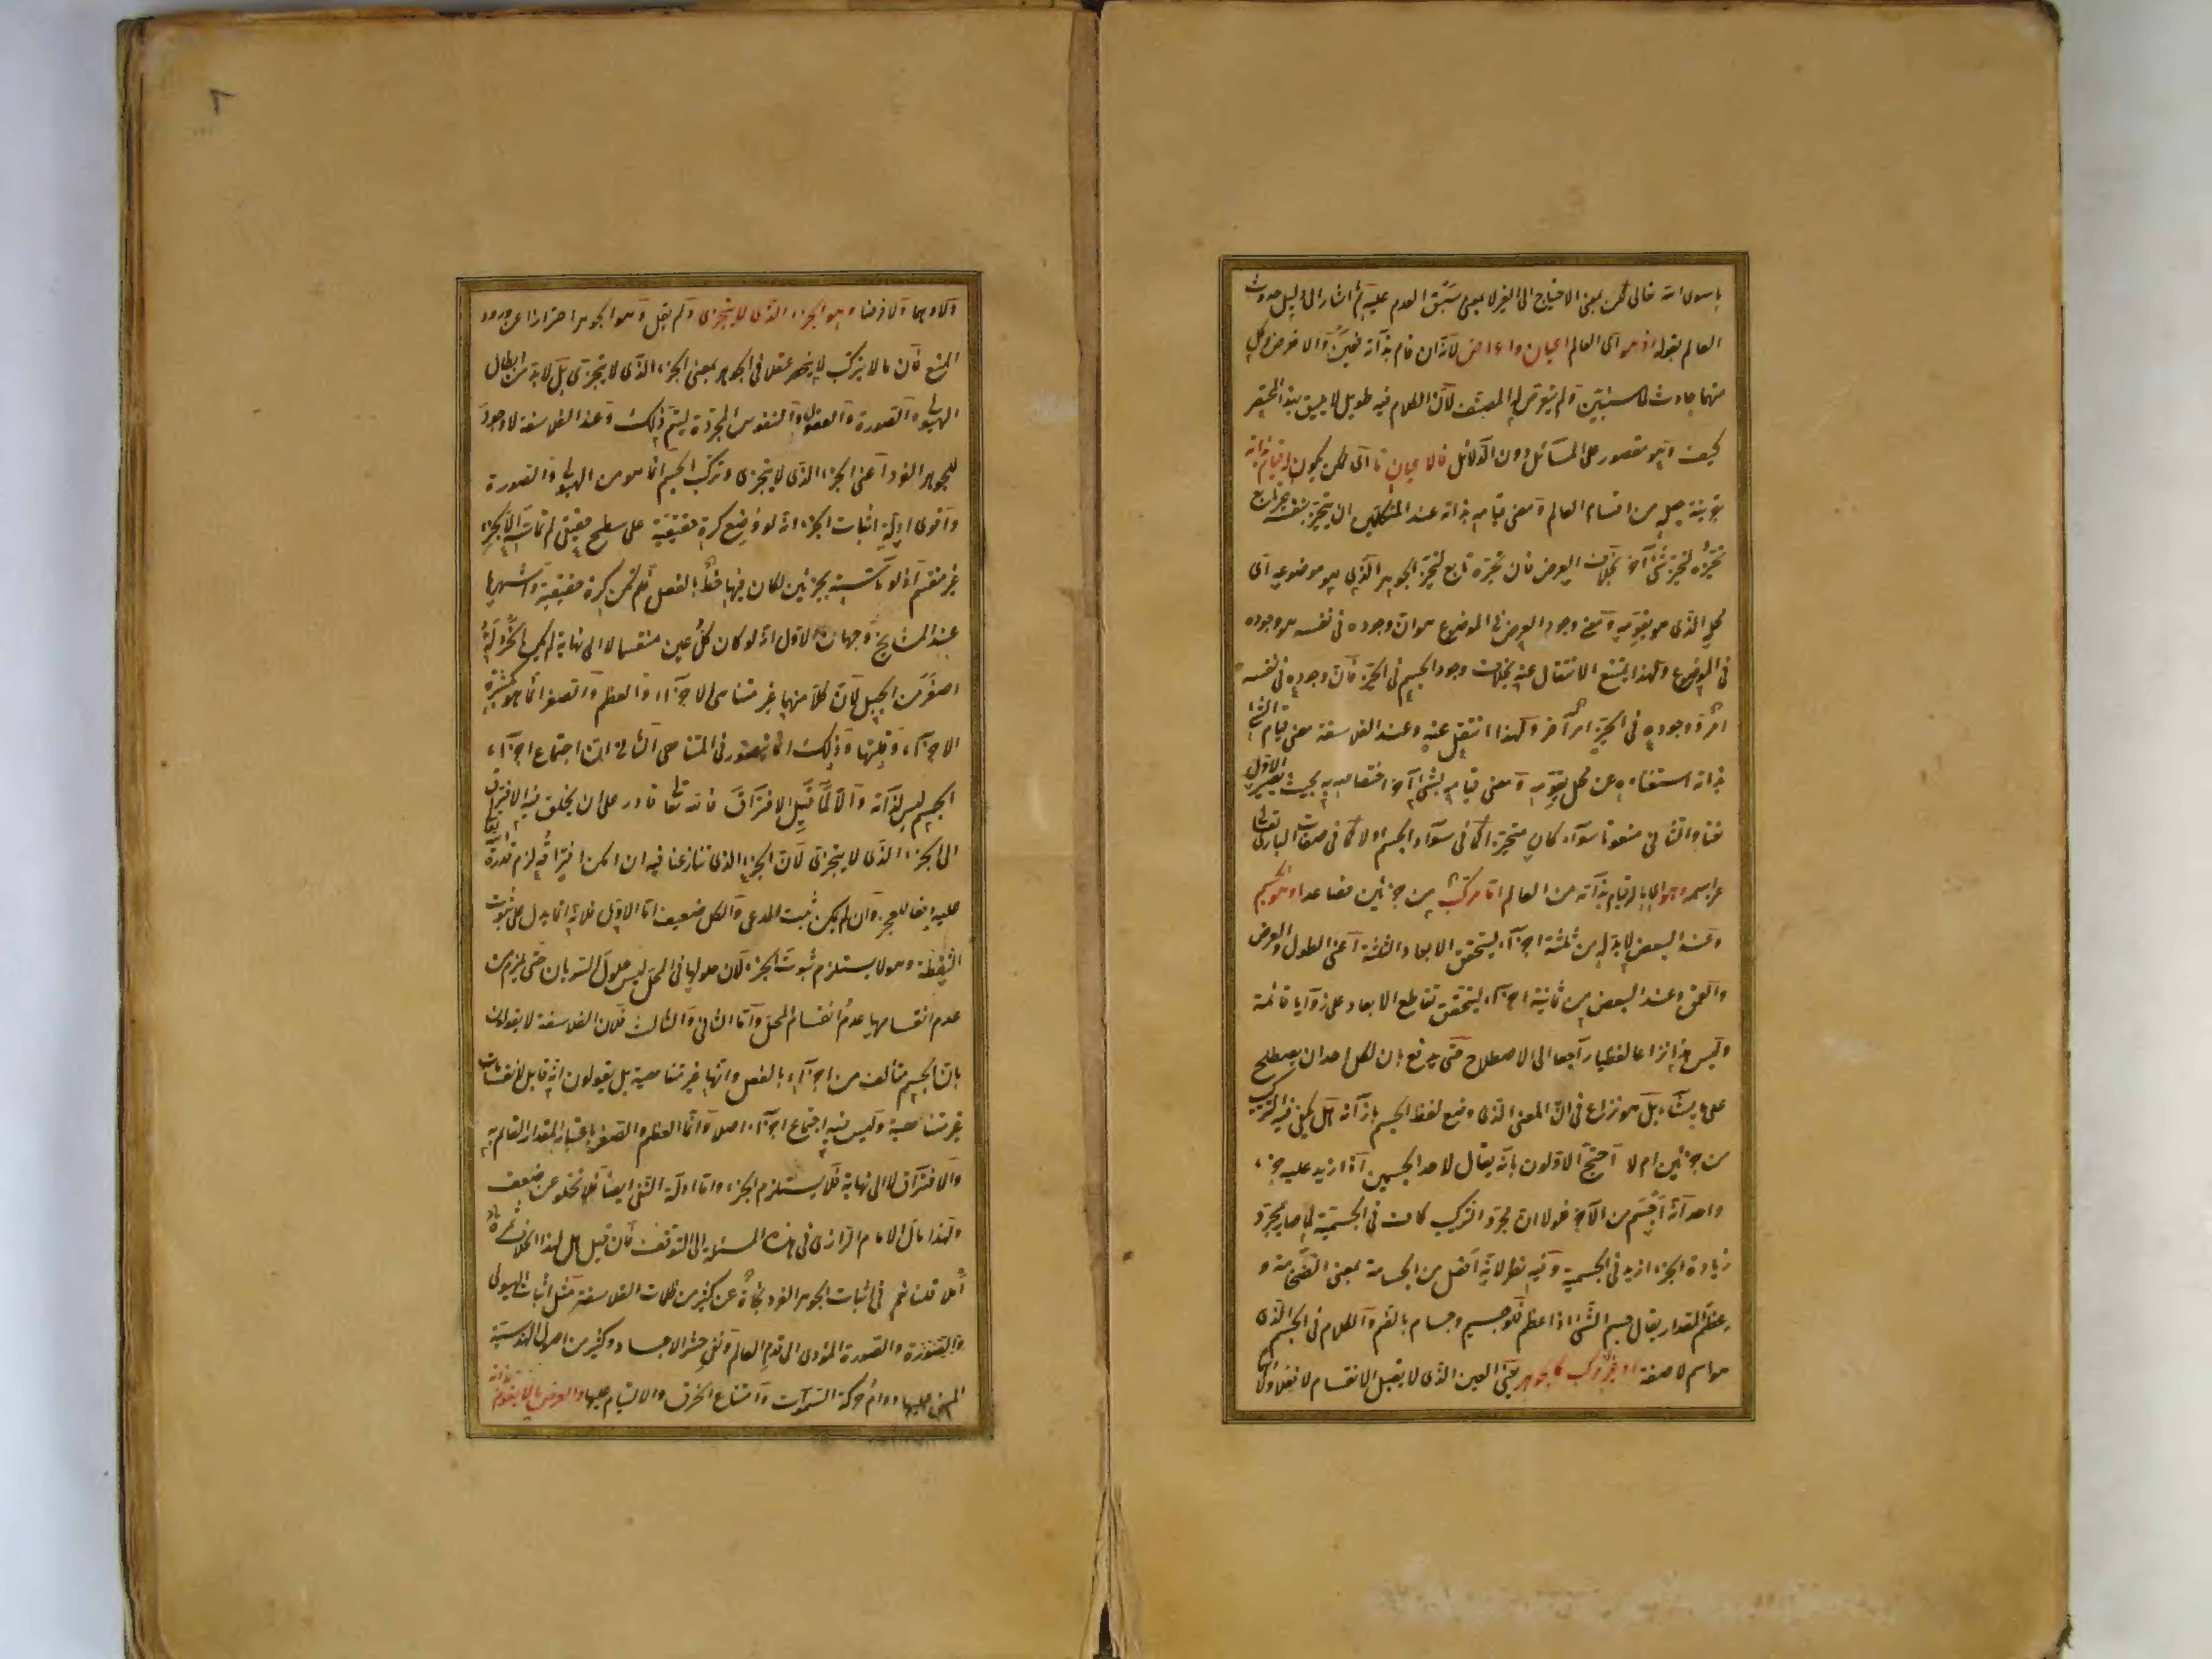 ما سوى الله تعالى لكن بمعنى الاحتياج الى الغير لا بمعنى سبق العدم عليه ثم اشار الى دليل حدوث
العالم بقوله اذ هو اى العالم اعيان واعراض لانه ان قام بذاته فعين والا فعرض وكل
منهما حادث لما سنبين ولم يتعرض له المصنف لان الكلام فيه طويل لا يليق بهذا المختصر
كيف وهو مقصور على المسائل دون الدلائل فالاعيان ما اى ممكن يكون له قيام بذاته
بقرينة جعله من اقسام العالم ومعنى قيامه بذاته عند المتكلمين ان يتحيز بنفسه غير تابع
تحيزه لتحيز شئ آخر بخلاف العرض فان تحيزه تابع لتحيز الجوهر الذى هو موضوعه اى
محله الذى هو يقومه ومعنى وجود العرض فى الموضوع هو ان وجوده فى نفسه هو وجوده
فى الموضوع ولهذا يمتنع الانتقال عنه بخلاف وجود الجسم فى الحيز فان وجوده فى نفسه
امر ووجوده فى الحيز امر آخر ولهذا انتقل عنه وعند الفلاسفة معنى قيام الشئ
بذاته استغناءه عن محل يقومه ومعنى قيامه بشئ آخر اختصاصه به بحيث يصير الاول
نعتا والثانى منعوتا سواء كان متحيزا كما فى سواد الجسم اولا كما فى صفات البارى تعالى
عز اسمه وهو اى ما له قيام بذاته من العالم اما مركب من جزئين فصاعدا وهو الجسم
وعند البعض لا بد له من ثلثة اجزاء ليتحقق الابعاد الثلثة اعنى الطول والعرض
والعمق وعند البعض من ثمانية اجزاء ليتحقق تقاطع الابعاد على زوايا قائمة
وليس هذا نزاعا لفظيا راجعا الى الاصطلاح حتى يدفع بان لكل احد ان يصطلح
على ما يشاء بل هو نزاع فى ان المعنى الذى وضع لفظ الجسم بازائه هل يكفى فيه التركيب
من جزئين ام لا احتج الاولون بانه يقال لاحد الجسمين اذا زيد عليه جزء
واحد انه اجسم من الآخر فلولا ان مجرد التركيب كاف فى الجسمية لما صار بمجرد
زيادة الجزء ازيد فى الجسمية وفيه نظر لانه افعل من الجسامة بمعنى الضخامة و
عظم المقدار يقال جسم الشئ اذا عظم فهو جسيم وجسام بالضم والكلام فى الجسم الذى
هو اسم لا صفة او غير مركب كالجوهر يعنى العين الذى لا يقبل الانقسام لا فعلا
ولا وهما ولا فرضا وهو الجزء الذى لا يتجزى ولم يقل وهو الجوهر احترازا عن ورود
المنع فان ما لا يتركب لا ينحصر عقلا فى الجوهر بمعنى الجزء الذى لا يتجزى بل لا بد من ابطال
الهيولى والصورة والعقول والنفوس المجردة ليتم ذلك وعند الفلاسفة لا وجود
للجوهر الفرد اعنى الجزء الذى لا يتجزى وتركب الجسم انما هو من الهيولى والصورة
واقوى ادلة اثبات الجزء انه لو وضع كرة حقيقية على سطح حقيقى لم تماسه الا بجزء
غير منقسم اذ لو ماسته بجزئين لكان فيها خط بالفعل فلم تكن كرة حقيقية واشهرها
عند المشايخ وجهان الاول انه لو كان كل عين منقسما لا الى نهاية لم يكن الخردلة
اصغر من الجبل لان كلا منهما غير متناهى الاجزاء والعظم والصغر انما هو بكثرة
الاجزاء وقلتها وذلك انما يتصور فى المتناهى الثانى ان اجتماع اجزاء
الجسم ليس لذاته والا لما قبل الافتراق فالله تعالى قادر على ان يخلق فيه الافتراق
الى الجزء الذى لا يتجزى لان الجزء الذى تنازعنا فيه ان امكن افتراقه لزم قدرة الله تعالى
عليه دفعا للعجز وان لم يكن ثبت المدعى والكل ضعيف اما الاول فلانه انما يدل على ثبوت
النقطة وهو لا يستلزم ثبوت الجزء لان حلولها فى المحل ليس حلول السريان حتى يلزم من
عدم انقسامها عدم انقسام المحل واما الثانى والثالث فلان الفلاسفة لا يقولون
بان الجسم متألف من اجزاء بالفعل وانها غير متناهية بل يقولون انه قابل لانقسامات
غير متناهية وليس فيه اجتماع اجزاء اصلا وانما العظم والصغر باعتبار المقدار القائم به
والافتراق لا الى نهاية فلا يستلزم الجزء واما ادلة النفى ايضا فلا تخلو عن ضعف
ولهذا مال الامام الرازى فى هذه المسئلة الى التوقف فان قيل هل لهذا الخلاف ثمرة
قلنا نعم فى اثبات الجوهر الفرد نجاة عن كثير من ظلمات الفلاسفة مثل اثبات الهيولى
والصورة المؤدى الى قدم العالم ونفى حشر الاجساد وكثير من اصول الهندسة
المبنى عليها دوام حركة السموات وامتناع الخرق والالتيام عليها والعرض ما لا يقوم بذاته